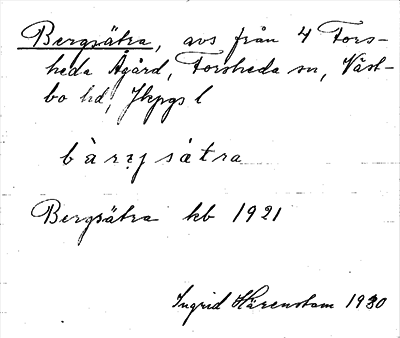 Bergsätra, avs från 4 Fors-
heda Ågård, Forsheda sn, Väst-
bo hd, Jkpgs l
bàrɟsátra
Bergsätra kb 1921
Ingrid Härenstam 1930